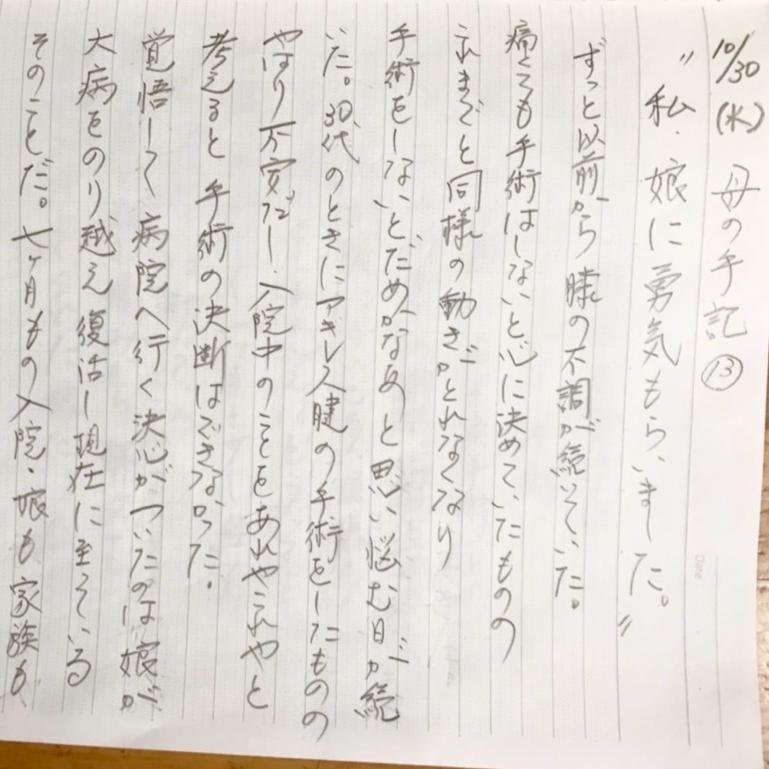 10/30(水) 母の手記⑬
"私、娘に勇気もらいました。"
ずっと以前から膝の不調が続いていた。
痛くても手術はしないと心に決めていたものの
これまでと同様の動きがとれなくなり
手術をしないとだめかなあと思い悩む日が続
いた。30代のときにアキレス腱の手術をしたものの
やはり不安だし、入院中のことをあれやこれやと
考えると手術の決断はできなかった。
覚悟して病院へ行く決心がついたのは娘が
大病をのり越え復活し現在に至っている
そのことだ。七ヶ月もの入院、娘も家族も
Date